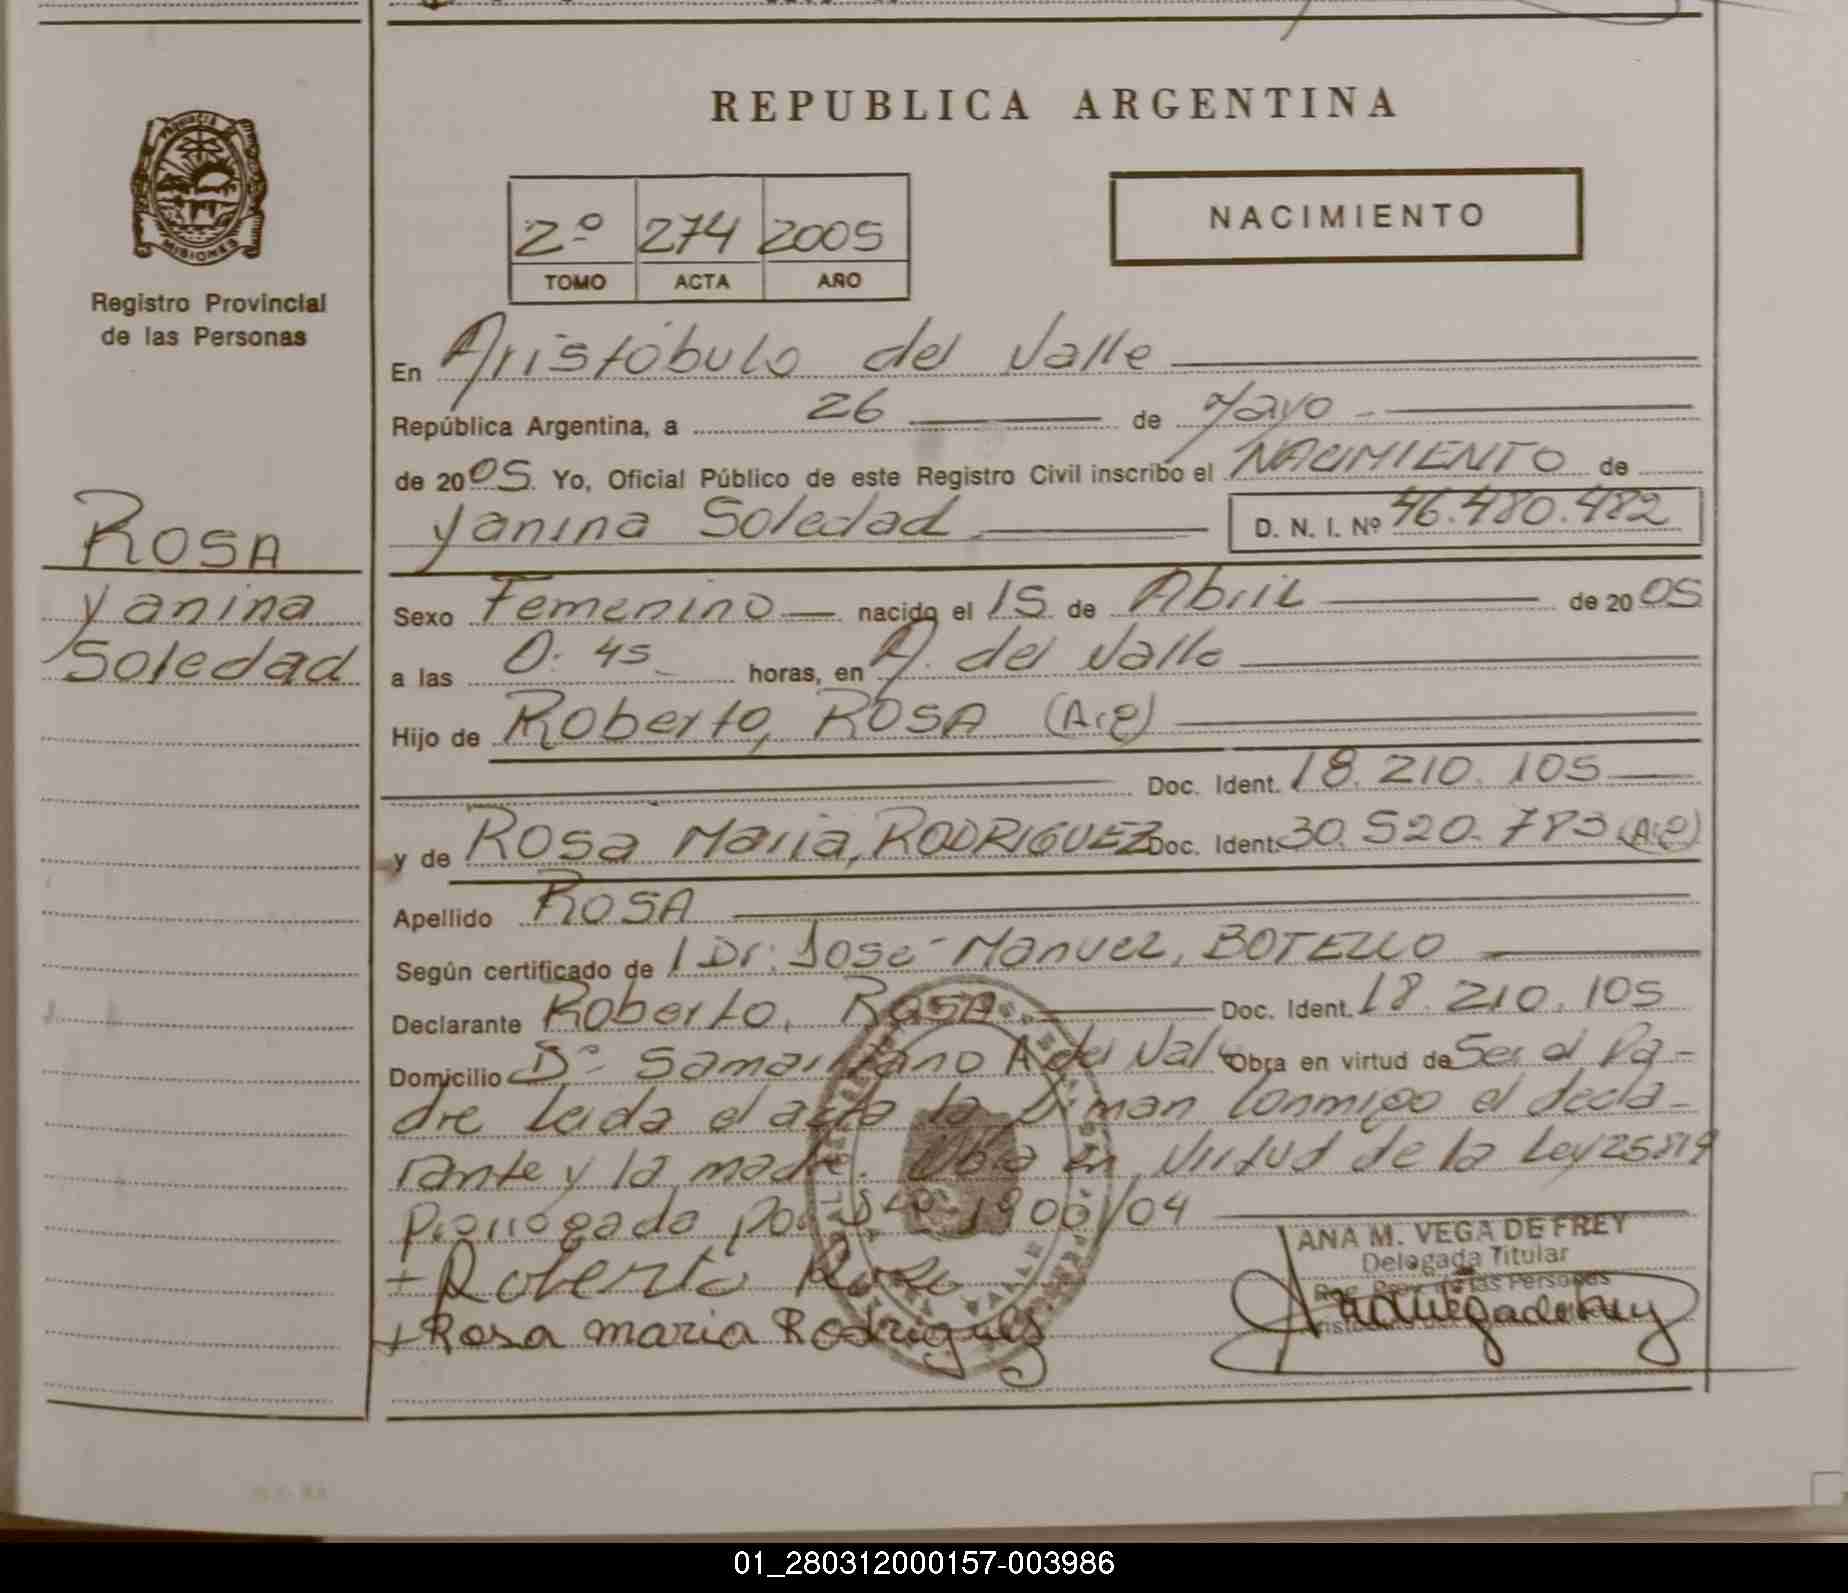 REPUBLICA ARGENTINA
PROVINCIA DE
MISIONES
Registro Provincial
de las Personas
2º 274 2005
TOMO ACTA AÑO
NACIMIENTO
En Aristóbulo del Valle
República Argentina, a 26 de Mayo
de 2005. Yo, Oficial Público de este Registro Civil inscribo el NACIMIENTO de
Yanina Soledad D. N. I. Nº 46.480.482
ROSA
Yanina
Soledad
Sexo Femenino nacido el 15 de Abril de 2005
a las 0.45 horas, en A. del Valle
Hijo de Roberto, ROSA (Arg)
Doc. Ident. 18.210.105
y de Rosa Maria, RODRIGUEZ Doc. Ident. 30.520.783 (Arg)
Apellido ROSA
Según certificado de / Dr: José Manuel, BOTELLO
Declarante Roberto, ROSA Doc. Ident. 18.210.105
Domicilio Dº Samaritano A del Valle Obra en virtud de Ser el Pa-
dre Leida el acta la firman conmigo el decla-
rante y la madre. Obra en Virtud de la Ley 25819
Prorrogado por 1900/04
+ Roberto Rosa
+ Rosa maria Rodriguez
ANA M. VEGA DE FREY
Delegada Titular
Reg. Prov. de las Personas
01_280312000157-003986